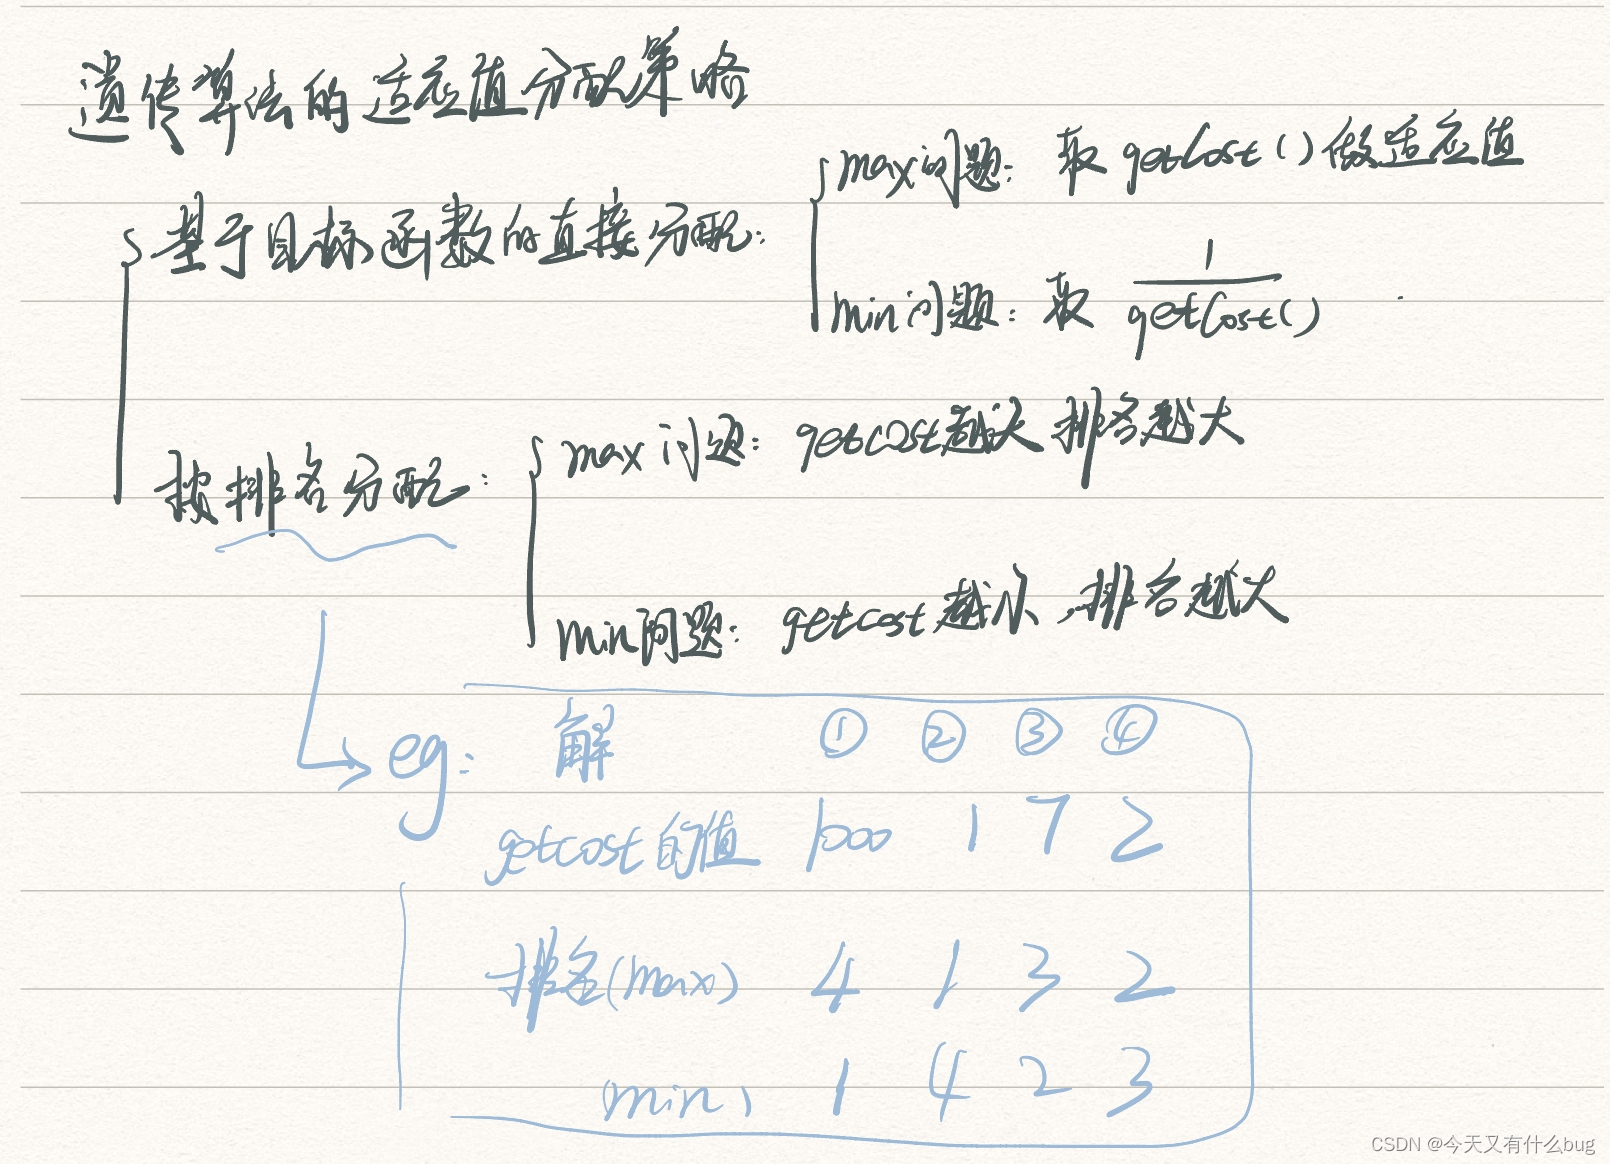 遗传算法的适应值分配策略
基于目标函数的直接分配:
max问题: 取 getCost() 做适应值
min问题: 取 1
getCost()
按排名分配:
max问题: getcost越大 排名越大
min问题: getcost越小, 排名越大
eg: 解 ① ② ③ ④
getcost的值 1000 1 7 2
排名(max) 4 1 3 2
min) 1 4 2 3
CSDN @今天又有什么bug